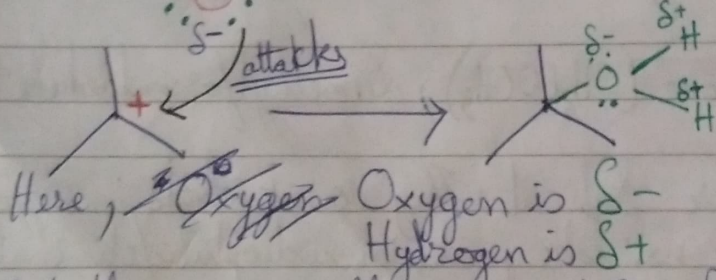 δ-
attakks
+
δ-
Ö
δ+
H
δ+
H
Here, Oxygen is δ-
Hydrogen is δ+